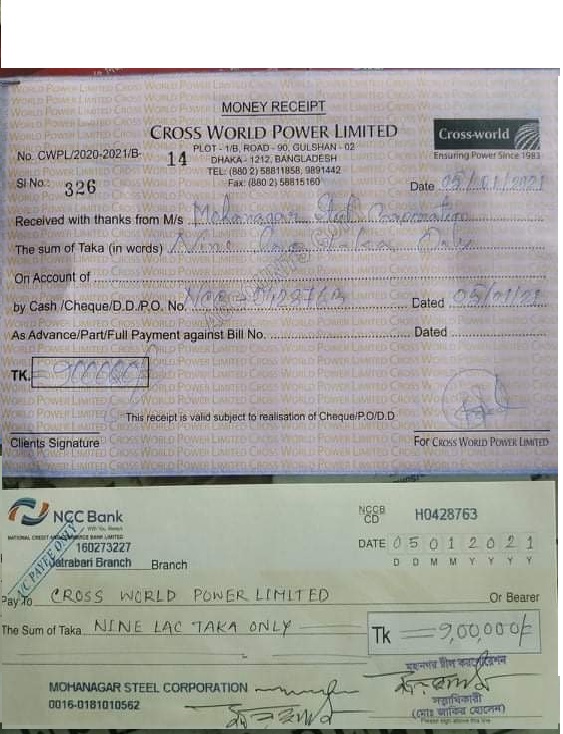 MONEY RECEIPT
CROSS WORLD POWER LIMITED
PLOT - 1/B, ROAD - 90, GULSHAN - 02
DHAKA - 1212, BANGLADESH
TEL: (880 2) 58811858, 9891442
Fax: (880 2) 58815160
Cross-world
Ensuring Power Since 1983
No. CWPL/2020-2021/B- 14
Sl No.: 326
Date 05/01/2021
Received with thanks from M/s Mohanagar Steel Corporation
The sum of Taka (in words) Nine Lac Taka Only
On Account of
by Cash /Cheque/D.D./P.O. No. NCC - 0428763 Dated 05/01/21
As Advance/Part/Full Payment against Bill No. Dated
TK. = 900000/-
This receipt is valid subject to realisation of Cheque/P.O/D.D
Clients Signature
For CROSS WORLD POWER LIMITED
NCC Bank
With You, Always
NATIONAL CREDIT AND COMMERCE BANK LIMITED
NCCB
CD
H0428763
160273227
Jatrabari Branch Branch
A/C PAYEE ONLY
DATE 0 5 0 1 2 0 2 1
D D M M Y Y Y Y
Pay To CROSS WORLD POWER LIMITED Or Bearer
The Sum of Taka NINE LAC TAKA ONLY
Tk = 9,00,000/=
মহানগর স্টীল কর্পোরেশন
MOHANAGAR STEEL CORPORATION
0016-0181010562
সত্ত্বাধিকারী
(মোঃ জাকির হোসেন)
Please sign above this line